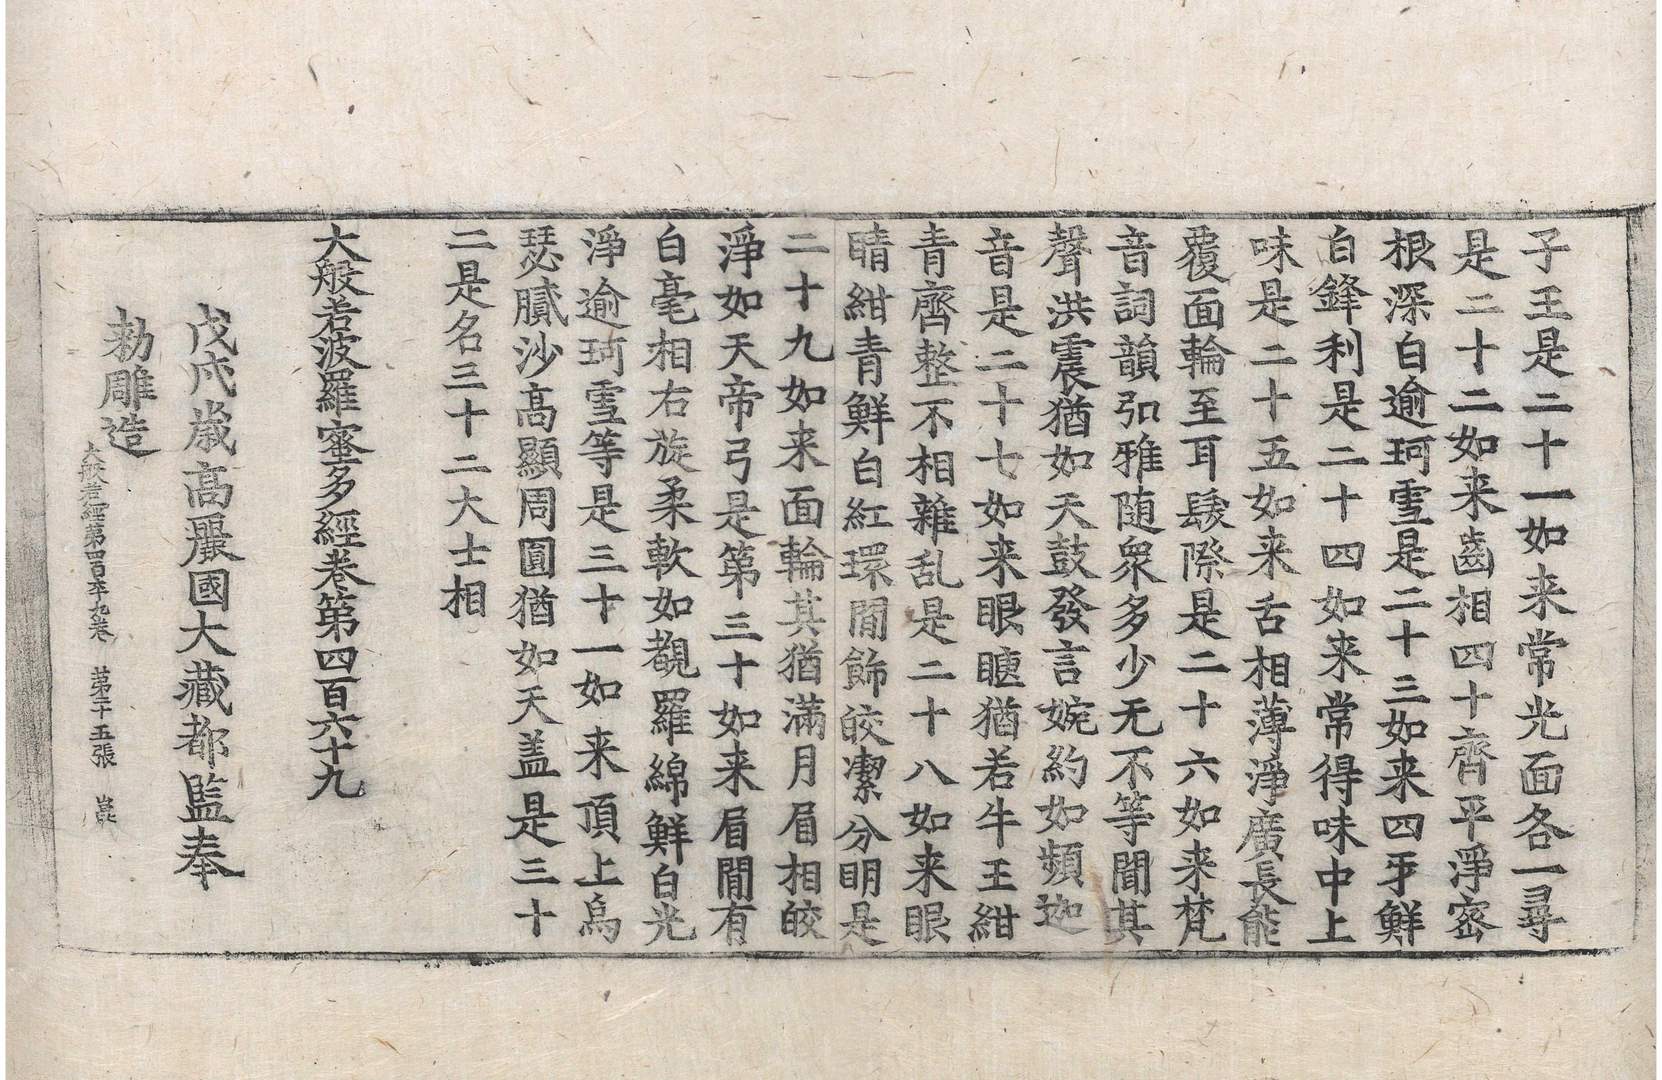 子王是二十一如来常光面各一尋
是二十二如来齒相四十齊平淨密
根深白逾珂雪是二十三如来四牙鮮
白鋒利是二十四如来常得味中上
味是二十五如来舌相薄淨廣長能
覆面輪至耳髮際是二十六如来梵
音詞韻弘雅随衆多少无不等聞其
聲洪震猶如天鼓發言婉約如頻迦
音是二十七如来眼睫猶若牛王紺
青齊整不相雜乱是二十八如来眼
睛紺青鮮白紅環閒飾皎潔分明是
二十九如来面輪其猶滿月眉相皎
淨如天帝弓是第三十如来眉閒有
白毫相右旋柔軟如覩羅綿鮮白光
淨逾珂雪等是三十一如来頂上烏
瑟膩沙高顯周圓猶如天盖是三十
二是名三十二大士相
大般若波羅蜜多經卷第四百六十九
戊戌歲高麗國大藏都監奉
勅雕造
大般若經第四百六十九卷 第二十五張